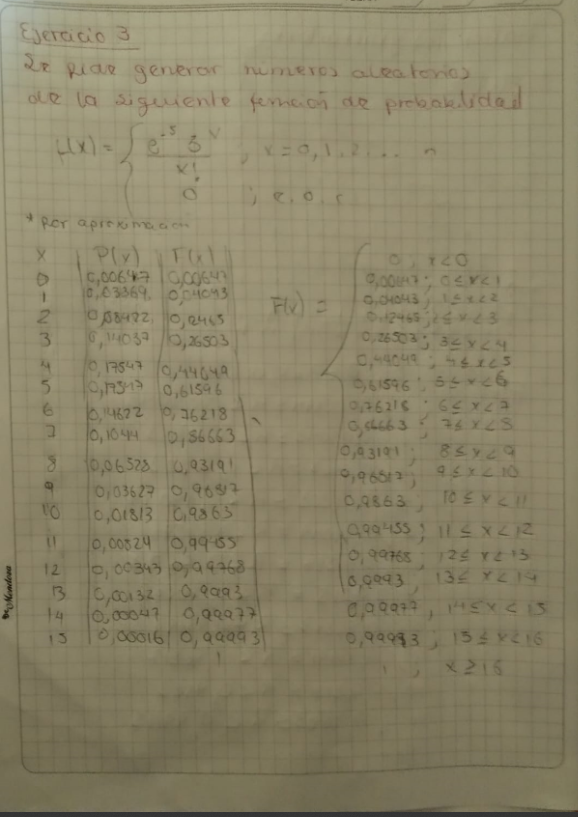 Ejercicio 3
Se pide generar numeros aleatorios
de la siguiente función de probabilidad
f(x) = { e^-5 5^x / x! , x = 0, 1, 2, ... n
0 ; e. o. c
* Por aproximación
x P(x) F(x)
0 0,00647 0,00647
1 0,03369 0,04043
2 0,08422 0,2465
3 0,14037 0,26503
4 0,17547 0,44049
5 0,17547 0,61596
6 0,14622 0,76218
7 0,1044 0,86663
8 0,06528 0,93191
9 0,03627 0,96817
10 0,01813 0,9863
11 0,00824 0,99455
12 0,00343 0,99768
13 0,00132 0,9993
14 0,00047 0,99977
15 0,00016 0,99993
1
F(x) =
0 , x < 0
0,00647 ; 0 ≤ x < 1
0,04043 ; 1 ≤ x < 2
0,12465 ; 2 ≤ x < 3
0,26503 ; 3 ≤ x < 4
0,44049 ; 4 ≤ x < 5
0,61596 ; 5 ≤ x < 6
0,76218 ; 6 ≤ x < 7
0,86663 ; 7 ≤ x < 8
0,93191 ; 8 ≤ x < 9
0,96817 ; 9 ≤ x < 10
0,9863 ; 10 ≤ x < 11
0,99455 ; 11 ≤ x < 12
0,99768 ; 12 ≤ x < 13
0,9993 ; 13 ≤ x < 14
0,99977 ; 14 ≤ x < 15
0,99993 ; 15 ≤ x < 16
1 , x ≥ 16